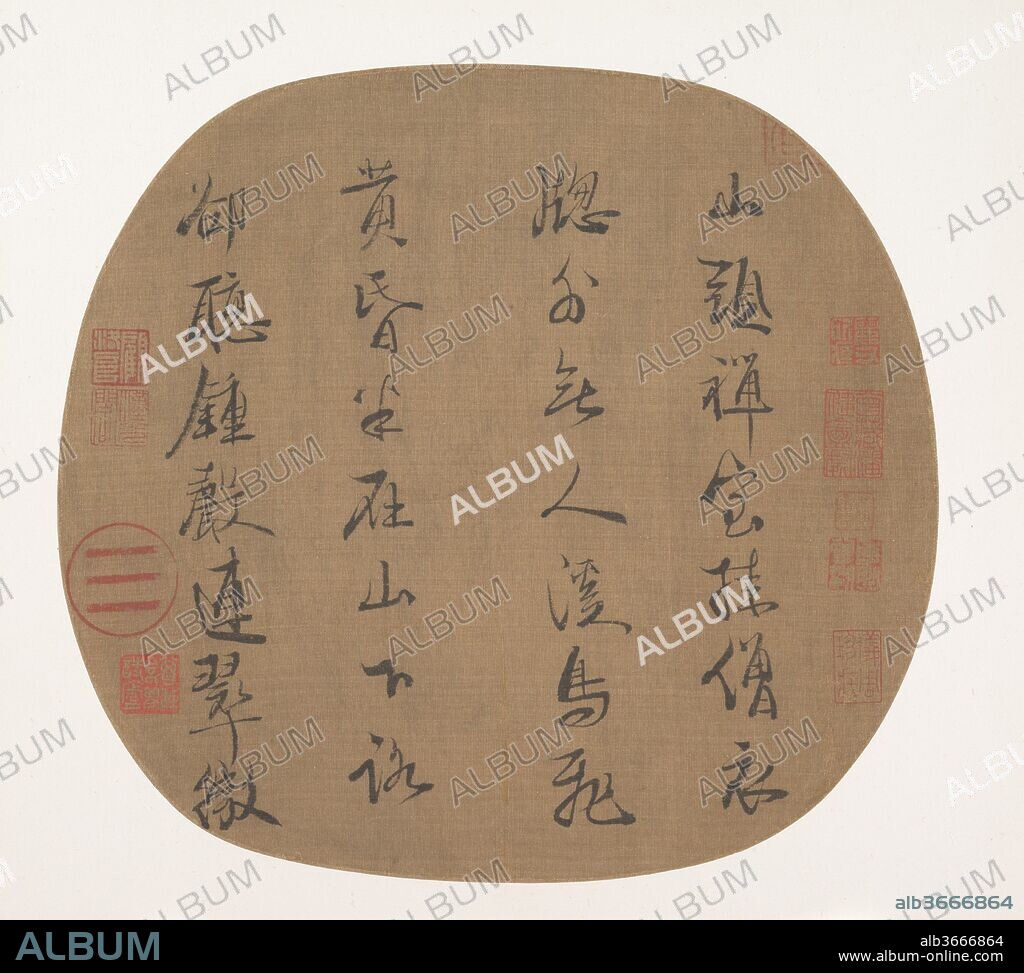 山頭禪室挂僧衣
牕外無人溪鳥飛
黃昏半在山下路
卻聽鍾聲連翠微
alb3666864
ALBUM
alb3666864
www.album-online.com